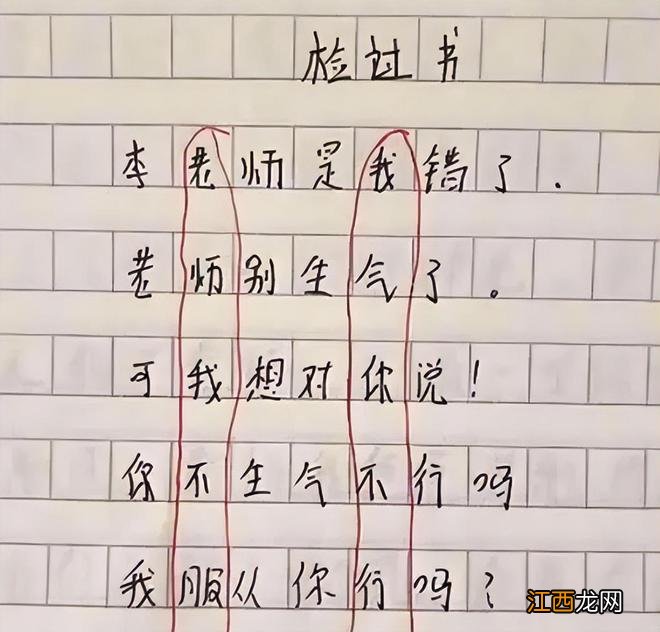 检过书
李老师是我错了.
老师别生气了。
可我想对你说!
你不生气不行吗
我服从你行吗?
江西龙网